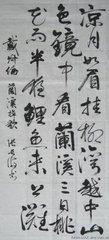 凉月如眉挂柳湾越中山
色镜中看兰溪三日桃
花雨半夜鲤鱼来上滩
戴叔伦
兰溪棹歌